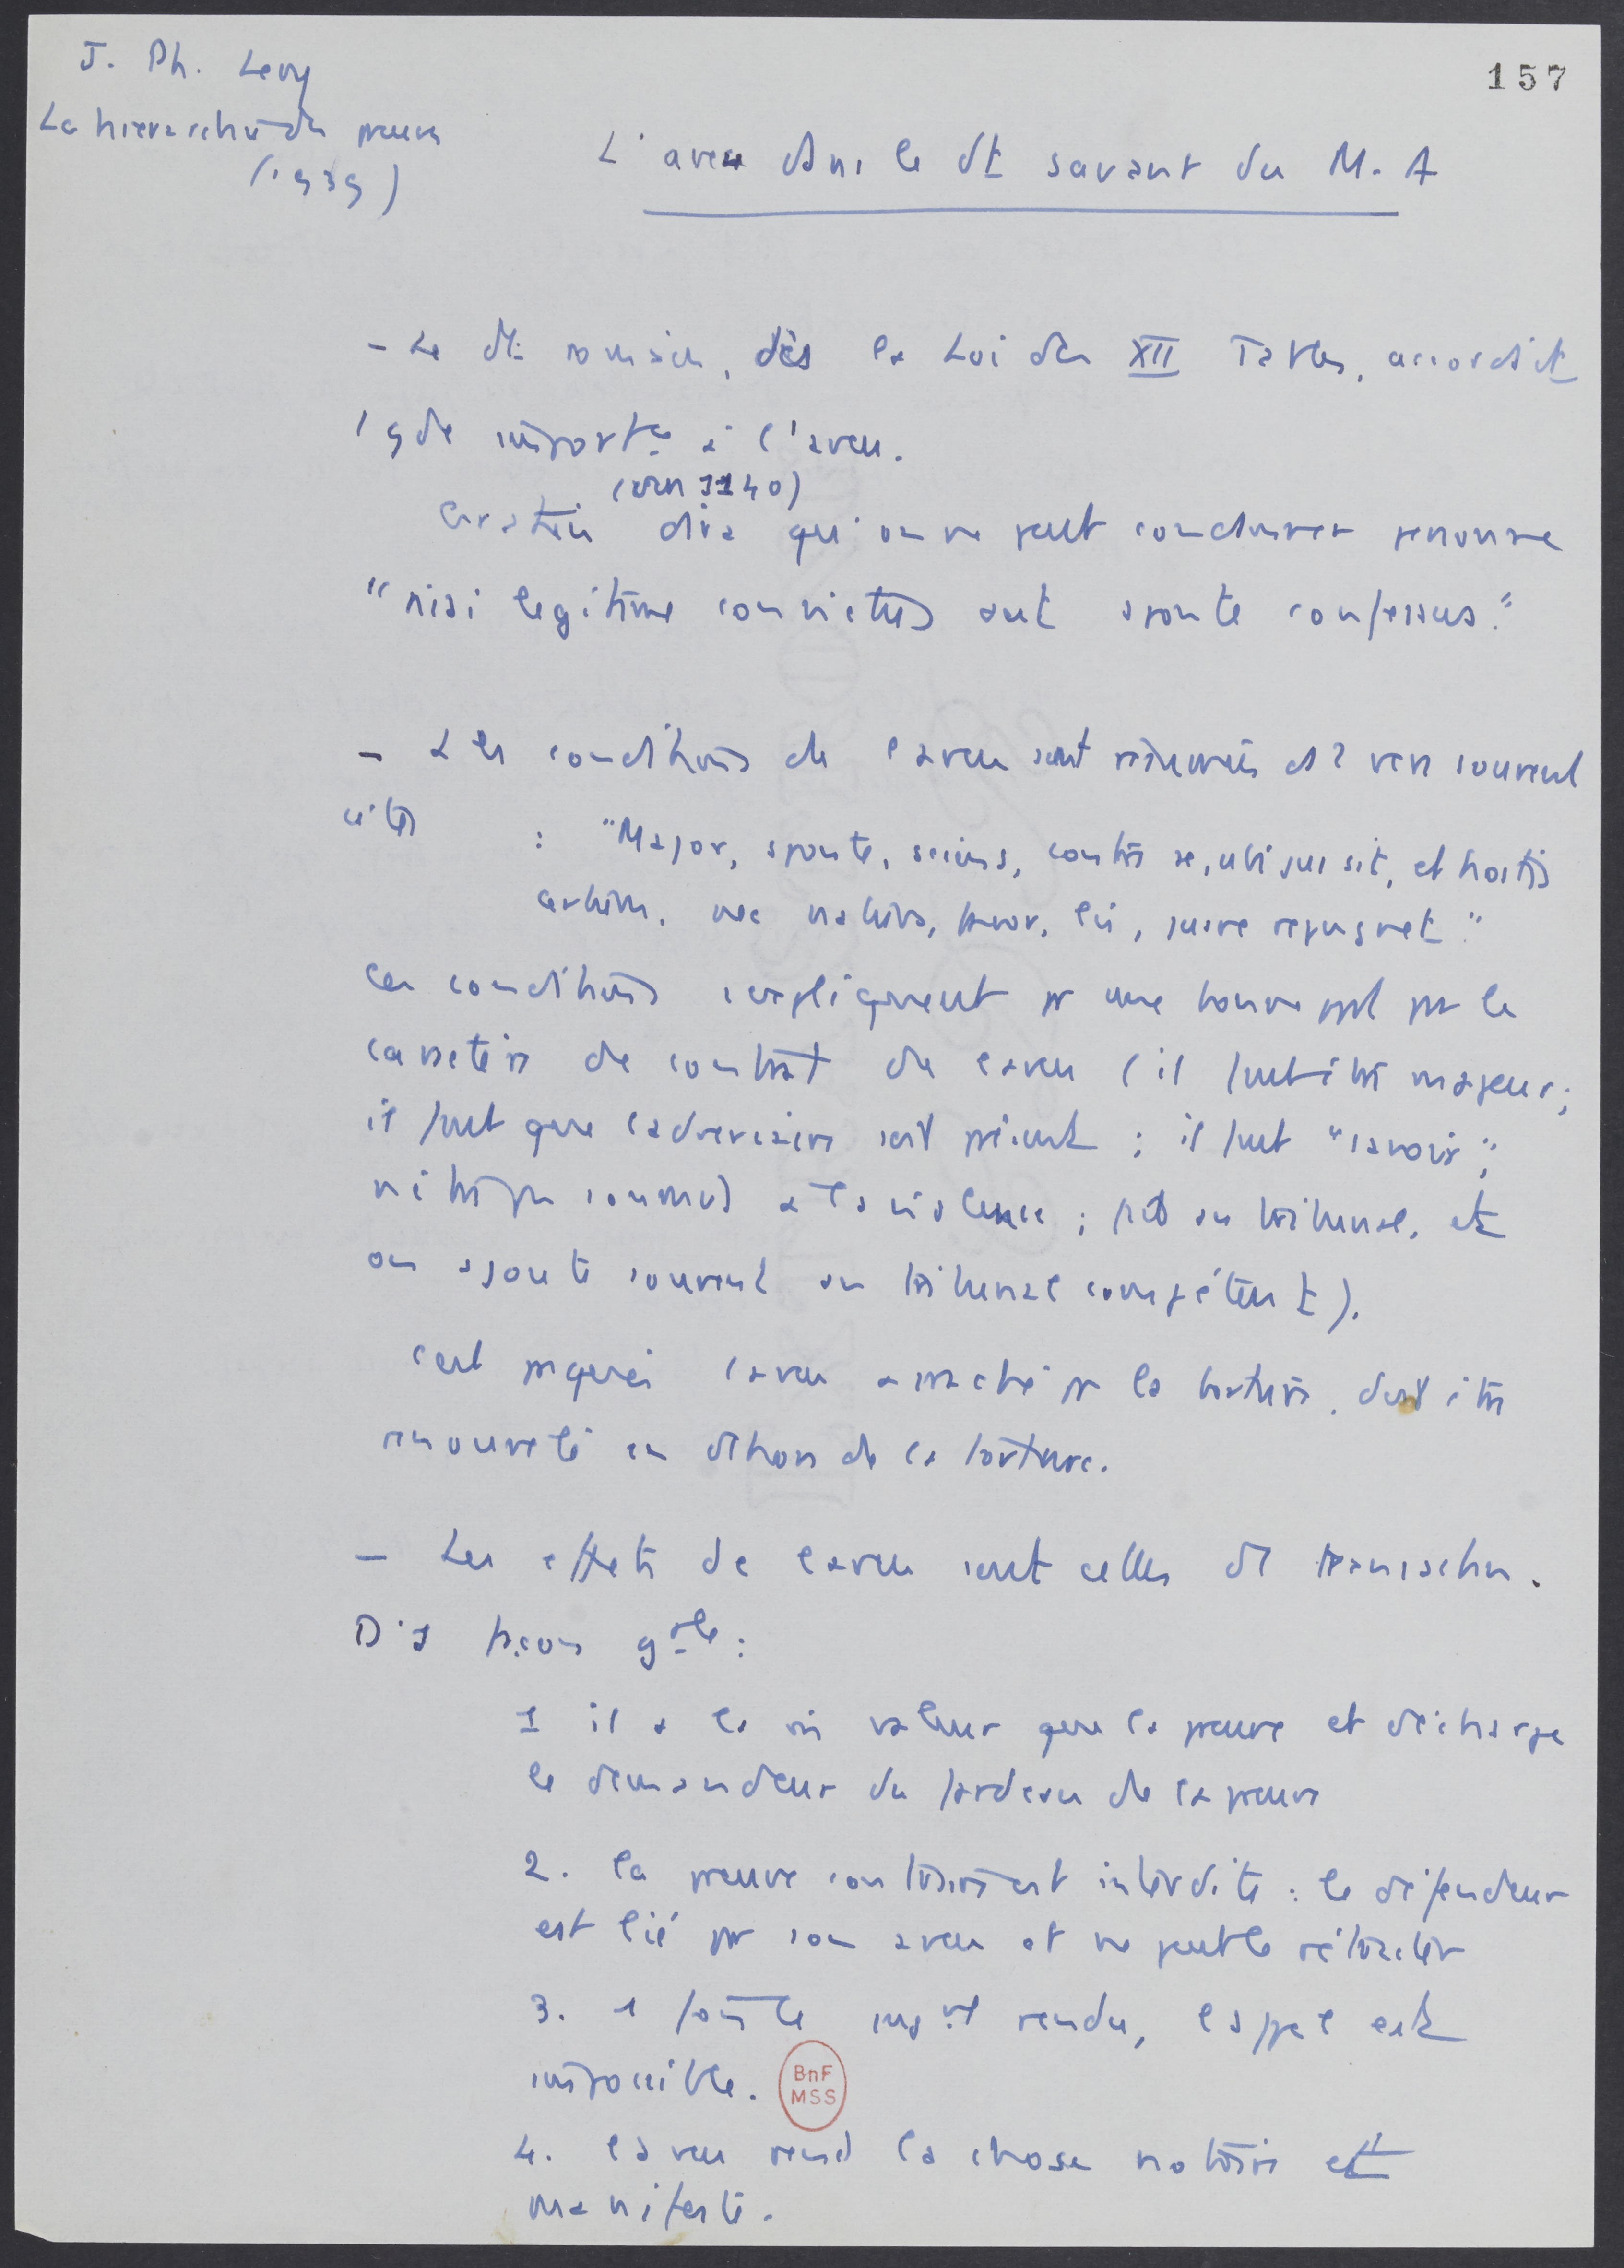 157
J. Ph. Levy
La hierarchie des preuves
(1939)
L'aveu dans le dt savant du M. A
- Le dt romain, dès la Loi des XII Tables, accordait
1 gde importce à l'aveu.
(vers 1140)
Gratien dira qu'on ne peut condamner personne
"nisi legitime convictus aut sponte confessus."
- Les conditions de l'aveu sont résumées ds 2 vers souvent
cités : "Major, sponte, sciens, contra se, ubi jus sit, et hostis
certum, nec natura, favor, lis, jusve repugnet."
Ces conditions s'expliquent pr une bonne part par le
caractère de contrat de l'aveu (il faut être majeur ;
il faut que l'adversaire soit présent ; il faut "savoir" ;
n'être pas soumis à la violence ; fait au tribunal, et
on ajoute souvent au tribunal compétent).
C'est pquoi l'aveu arraché pr la torture, doit être
renouvelé en dehors de la torture.
- Les effets de l'aveu sont celles de transaction.
D'1 façon gale :
1 il a la m̄ valeur que la preuve et décharge
le demandeur du fardeau de la preuve
2. la preuve contraire est interdite : le défendeur
est lié par son aveu et ne peut le rétracter
3. 1 fois le jugt rendu, l'appel est
impossible.
BnF
MSS
4. l'aveu rend la chose notoire et
manifeste.